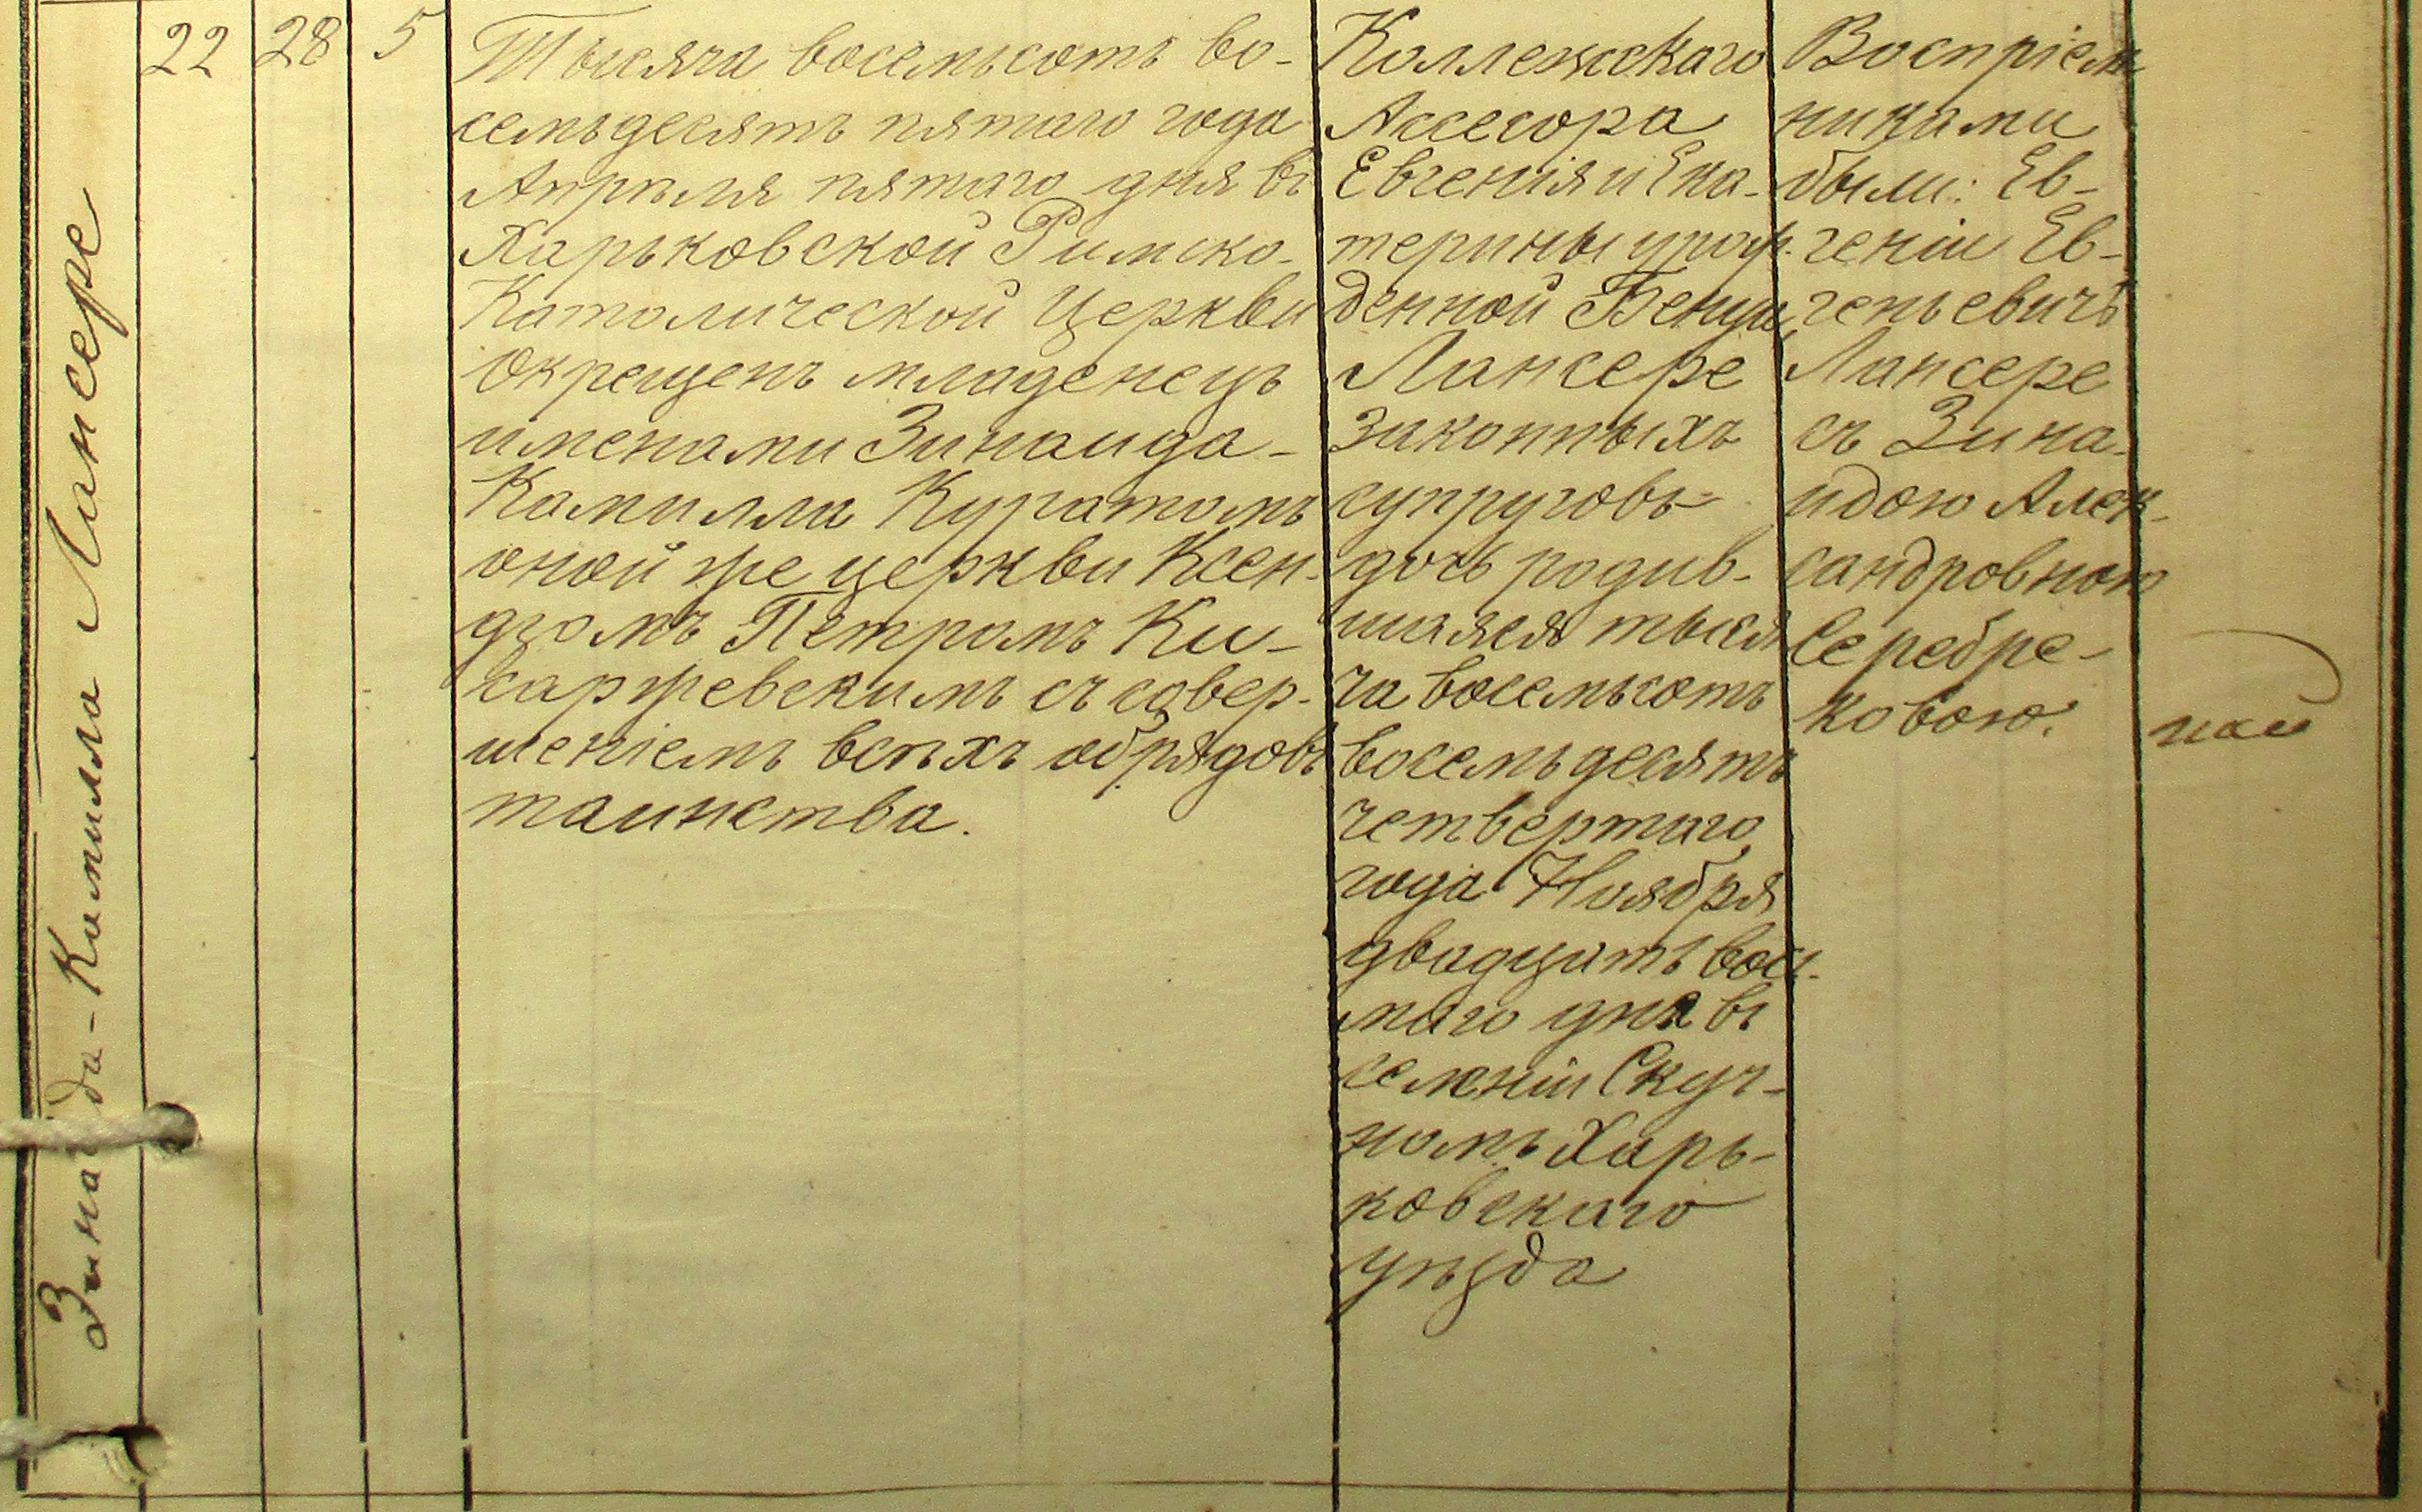 Зинаида-Камилла Лансере
22
28
5
Тысяча восемьсотъ во-
семьдесятъ пятаго года
Апрѣля пятаго дня въ
Харьковской Римско-
Католической Церкви
окрещенъ младенецъ
именами Зинаида-
Камилла Куратомъ
оной же церкви Ксен-
дзомъ Петромъ Ки-
саржевскимъ съ совер-
шеніемъ всѣхъ обрядовъ
таинства.
Коллежскаго
Ассесора
Евгенія и Ека-
терины урож-
денной Бенуа
Лансере
законныхъ
супруговъ
дочь родив-
шаяся тыся
ча восемьсотъ
восемьдесятъ
четвертаго
года Ноября
двадцать вось-
маго дня въ
селеніи Скуч-
номъ Харь-
ковскаго
уѣзда
Воспріем
никами
были: Ев-
геній Ев-
геньевичъ
Лансере
съ Зина-
идою Алек-
сандровною
Серебре-
ковою.